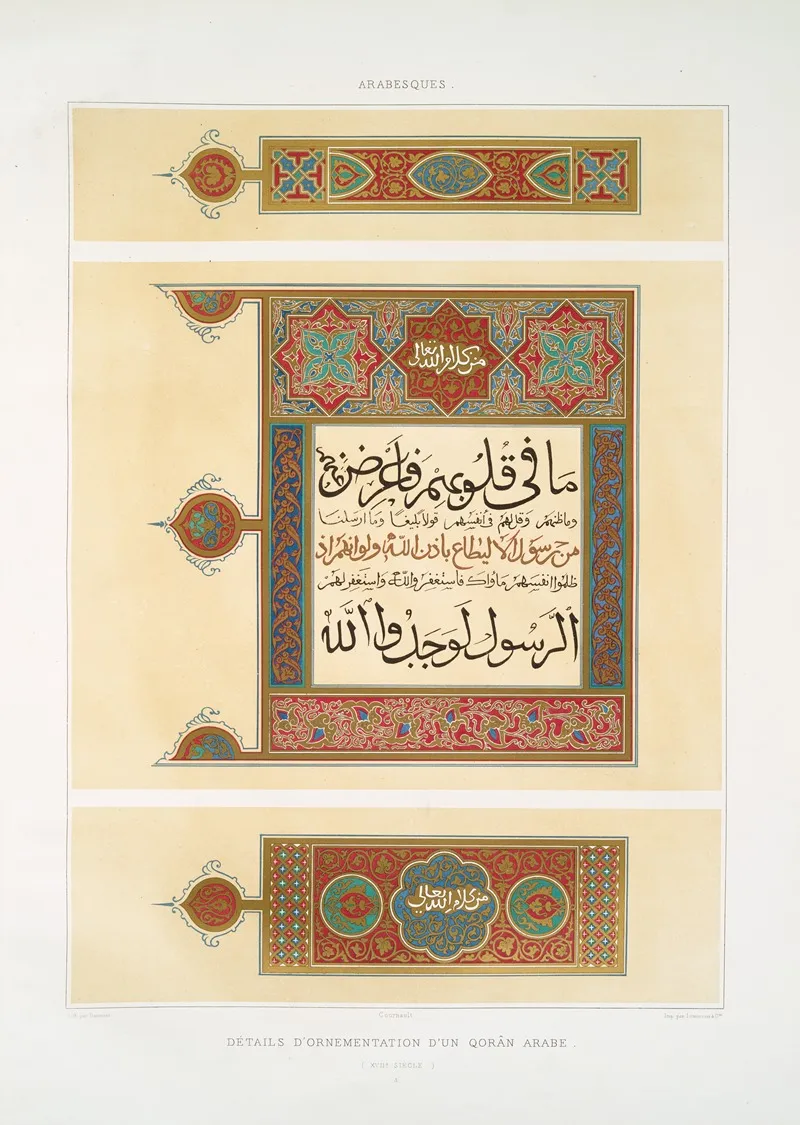 ARABESQUES .
من كلام الله تعالى
مَا فى قُلُوبهِمْ فَاَعْرِضْ
وقل لهم فى أنفسهم قولاً بليغاً وما ارسلنا
من رسول الا ليطاع باذن الله ولو انهم اذ
ظلموا انفسهم فاستغفروا الله واستغفر لهم
الرَّسُول لَوَجَدُوا اللَّه
من كلام الله تعالى
Lith. par
Cournault
Imp. par Lemercier & Cie
DÉTAILS D'ORNEMENTATION D'UN QORÂN ARABE .
SIÈCLE )